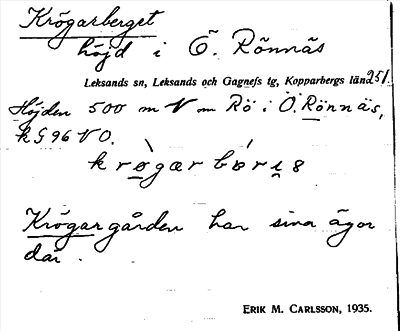 Krögarberget
höjd i Ö. Rönnäs
Leksands sn, Leksands och Gagnefs tg, Kopparbergs län 251.
Höjden 500 m V m Rö i Ö. Rönnäs,
k S 96 V O.
krøgær bæris
Krögargården har sina ägor
där.
ERIK M. CARLSSON, 1935.